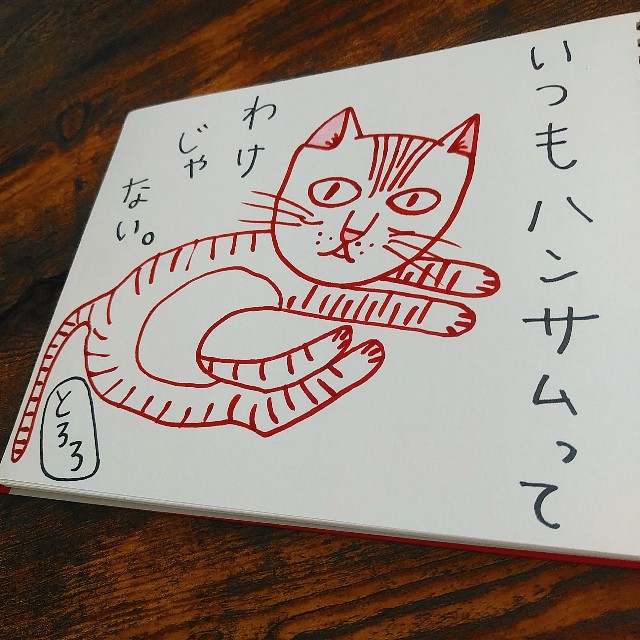 いつもハンサムって
わけ
じゃ
ない。
とろろ